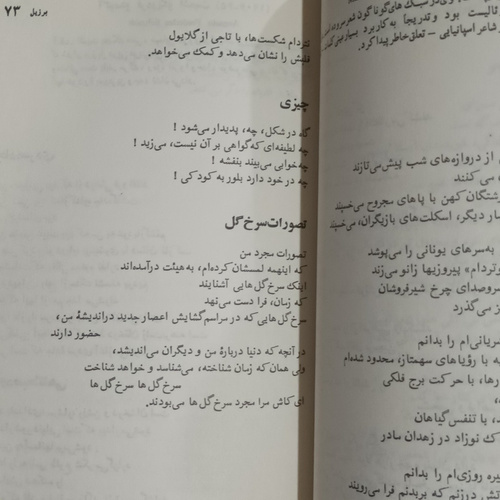 برزیل ۷۳
نتردام شکست‌ها، با تاجی از گلایول
قلبش را نشان می‌دهد و کمک می‌خواهد.
چیزی
گاه در شکل، چه، پدیدار می‌شود !
چه لطیفه‌ای که گواهی بر آن نیست، می‌زید !
چه خوابی می‌بیند بنفشه !
چه در خود دارد بلور به کودکی !
تصورات سرخ‌گل
تصورات مجرد من
که اینهمه لمسشان کرده‌ام، به‌هیئت درآمده‌اند
اینک سرخ‌گل‌هایی آشنایند
که زمان، فرا دست می‌نهد
سرخ‌گل‌هایی که در مراسم گشایش اعصار جدید در اندیشهٔ من،
حضور دارند
در آنچه که دنیا دربارهٔ من و دیگران می‌اندیشد،
ولی همان که زمان شناخته، می‌شناسد و خواهد شناخت
سرخ‌گل‌ها سرخ‌گل‌ها
ای کاش مرا مجرد سرخ‌گل‌ها می‌بودند.
تالیست بود و تدریجاً به کار برد بسیار
شاعر اسپانیایی - تعلق‌خاطر پیدا کرد.
از دروازه‌های شب پیش می‌تازند
می کنند
رشتگان کهن با پاهای مجروح می‌خسپند
سار دیگر، اسکلت‌های بازیگران، می‌خسپند
به‌سرهای یونانی را می‌پوشد
وتردام» پیروزیها زانو می‌زند
سروصدای چرخ شیرفروشان
ز می‌گذرد
سریانی‌ام را بدانم
به با رؤیاهای سهمتاز، محدود شده‌ام
رها، با حرکت برج فلکی
د، با تنفس گیاهان
ک نوزاد در زهدان مادر
یره روزی‌ام را بدانم